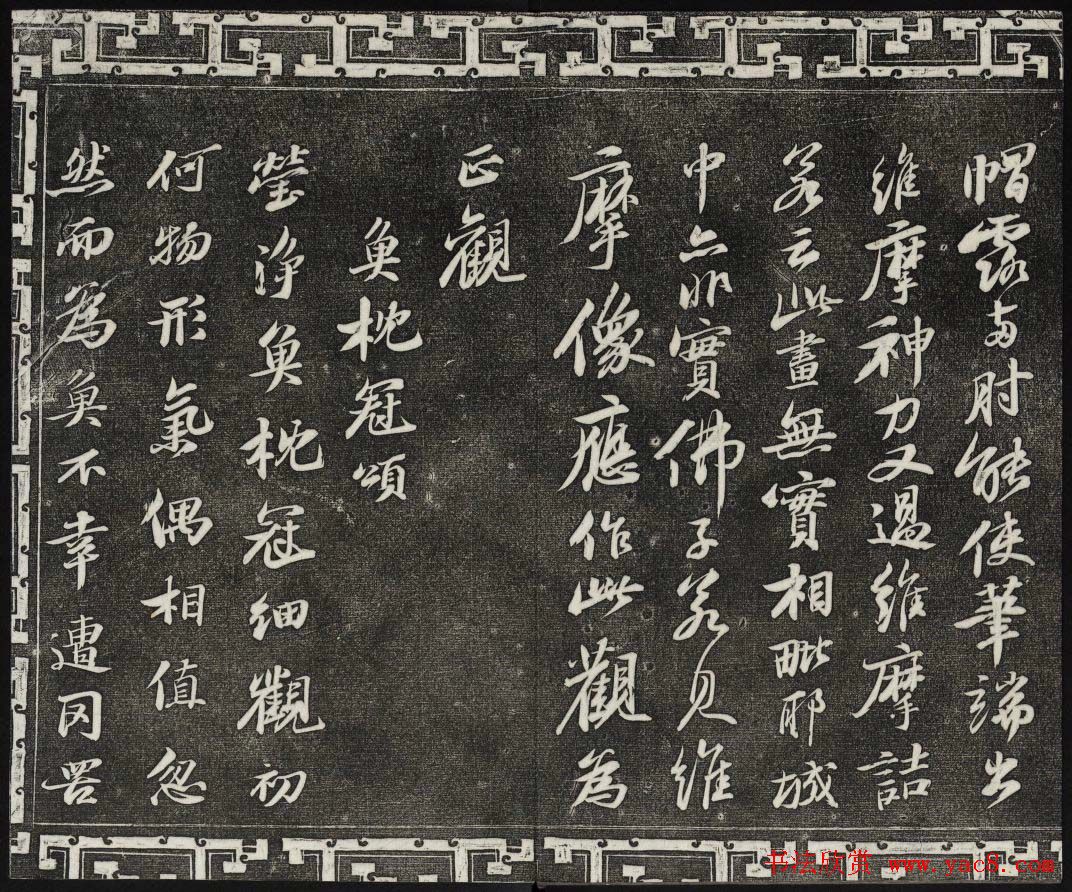 帽露兩肘能使筆端出
維摩神力又過維摩詰
若云此畫無實相毗耶城
中亦非實佛子若見維
摩像應作此觀為
正觀
魚枕冠頌
瑩淨魚枕冠細觀初
何物形氣偶相值忽
然而為魚不幸遭网罟
书法欣赏 www.yac8.com